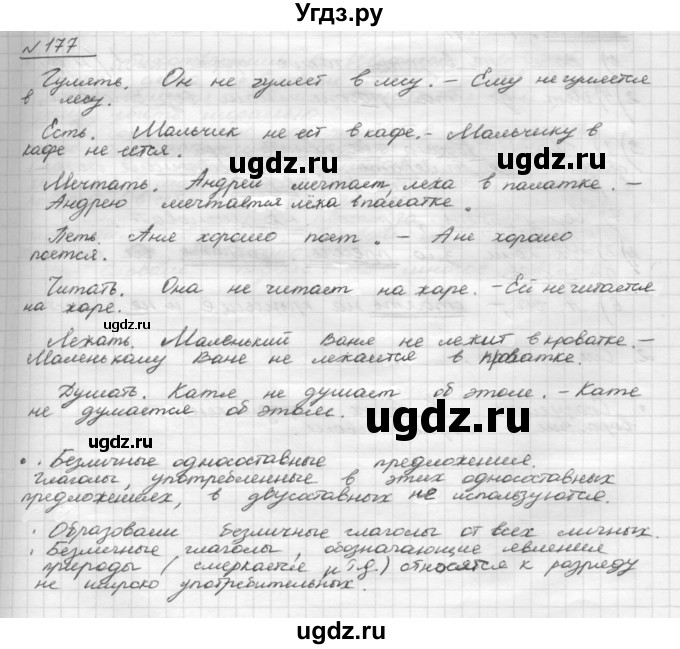 Угдз.ру
№ 177
Гулять. Он не гуляет в лесу. – Ему не гуляется
в лесу.
Есть. Мальчик не ест в кафе. – Мальчику в
кафе не естся.
ugdz.ru
ugdz.ru
Мечтать. Андрей мечтает лёжа в палатке. –
Андрею мечтается лёжа в палатке.
Петь. Аня хорошо поёт. – Ане хорошо
поется.
Читать. Она не читает на жаре. – Ей не читается
на жаре.
ugdz.ru
ugdz.ru
Лежать. Маленький Ваня не лежит в кроватке. –
Маленькому Ване не лежится в кроватке.
Думать. Катя не думает об этом. – Кате
не думается об этом.
ugdz.ru
ugdz.ru
• . Безличные односоставные предложения.
Глаголы, употребленные в этих односоставных
предложениях, в двусоставных не используются.
ugdz.ru
. Образовали безличные глаголы от всех личных.
. Безличные глаголы, обозначающие явления
природы (смеркается и т.д.) относятся к разряду
не широко употребительных.
ugdz.ru
ugdz.ru